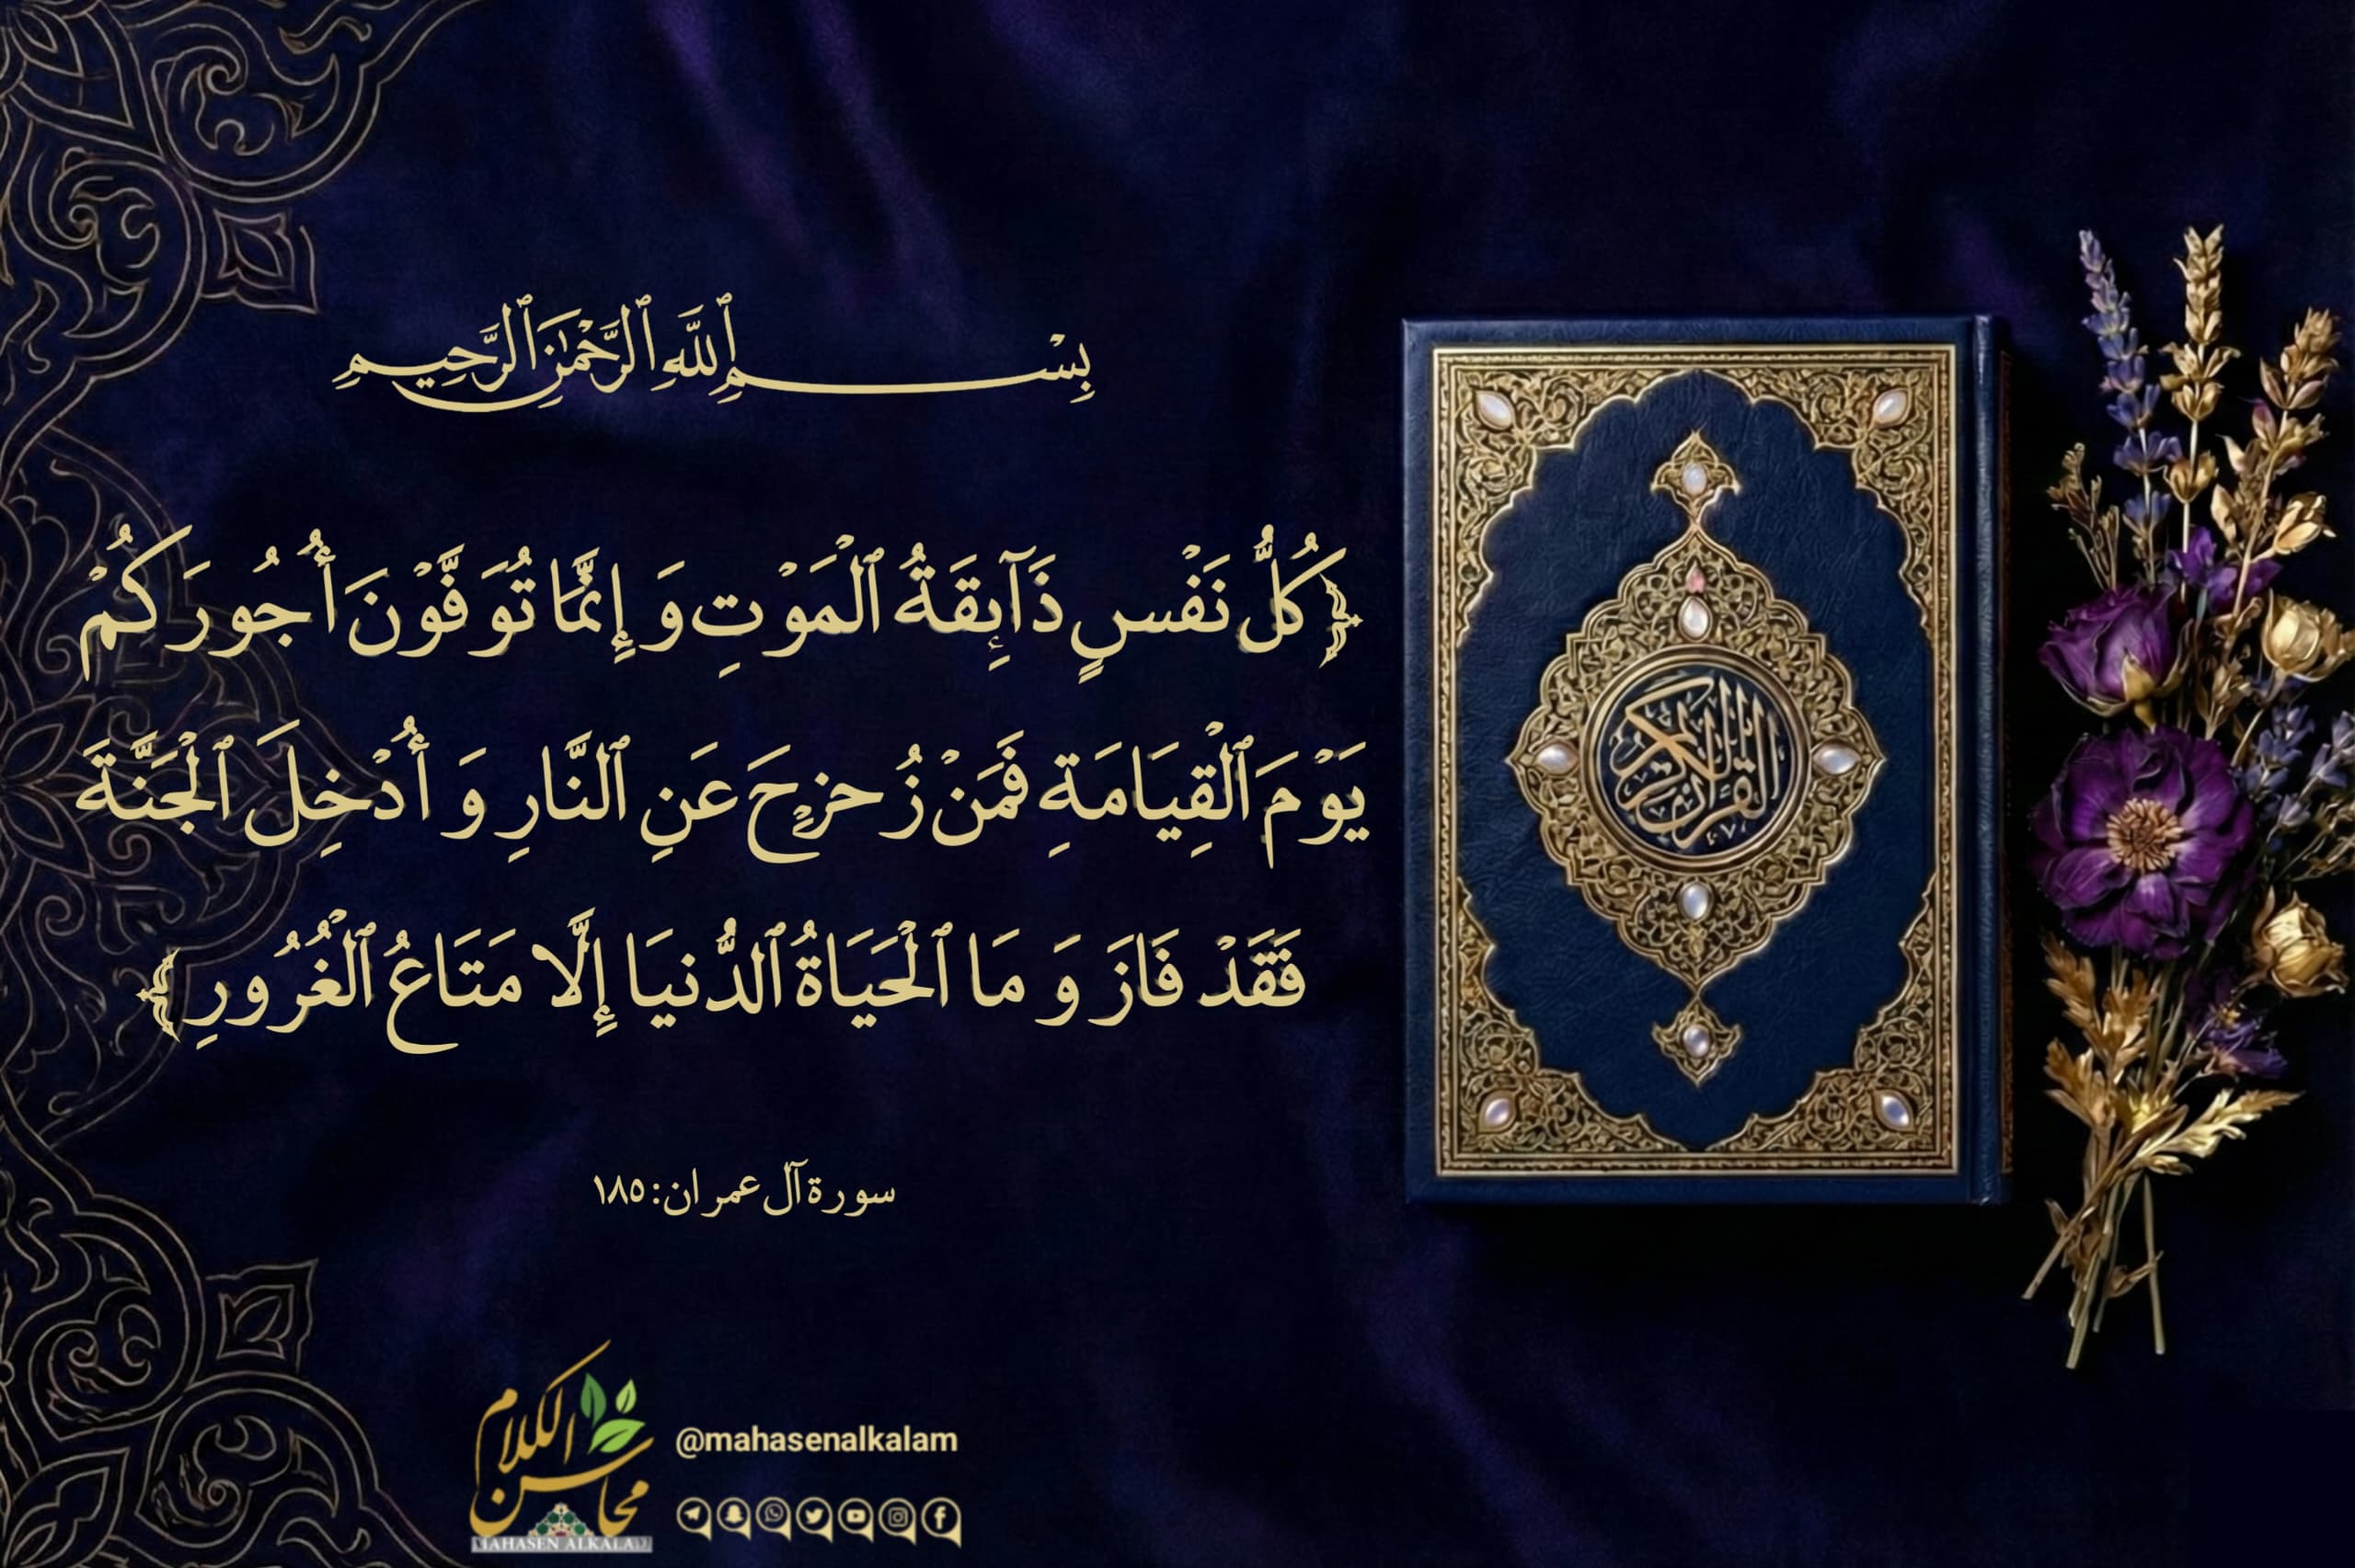 بِسْمِ ٱللَّهِ ٱلرَّحْمَٰنِ ٱلرَّحِيمِ
﴿كُلُّ نَفْسٍ ذَآىِٕقَةُ ٱلْمَوْتِ وَ إِنَّمَا تُوَفَّوْنَ أُجُورَكُمْ
يَوْمَ ٱلْقِيَامَةِ فَمَنْ زُحزِحَ عَنِ ٱلنَّارِ وَ أُدْخِلَ ٱلْجَنَّةَ
فَقَدْ فَازَ وَ مَا ٱلْحَيَاةُ ٱلدُّنيَا إِلَّا مَتَاعُ ٱلْغُرُورِ﴾
سورة آل عمران: ١٨٥
القرآن الكريم
محاسن الكلام
MAHASEN ALKALAM
@mahasenalkalam